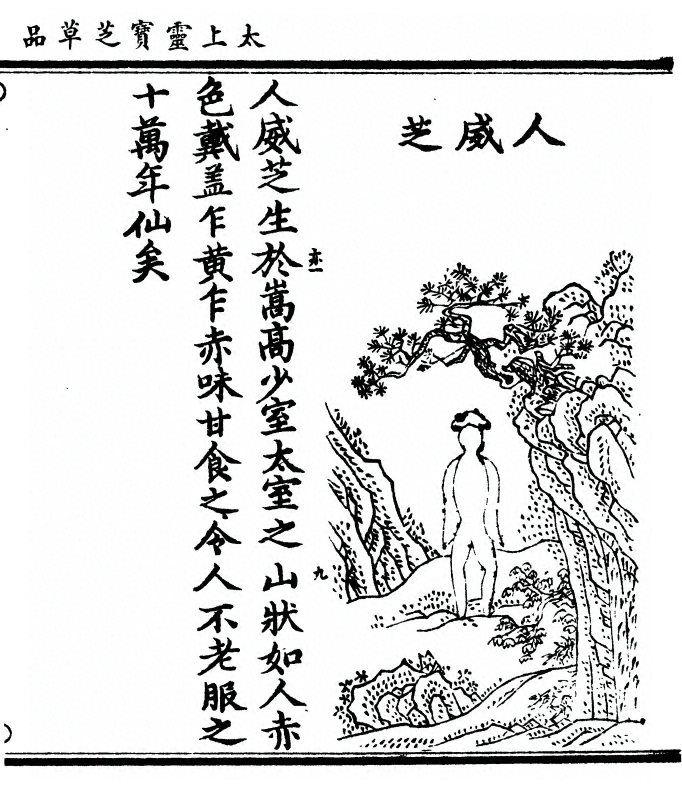 太上靈寶芝草品
人威芝
人威芝生於嵩高少室太室之山狀如人赤
色戴盖乍黄乍赤味甘食之令人不老服之
十萬年仙矣
亦一
九